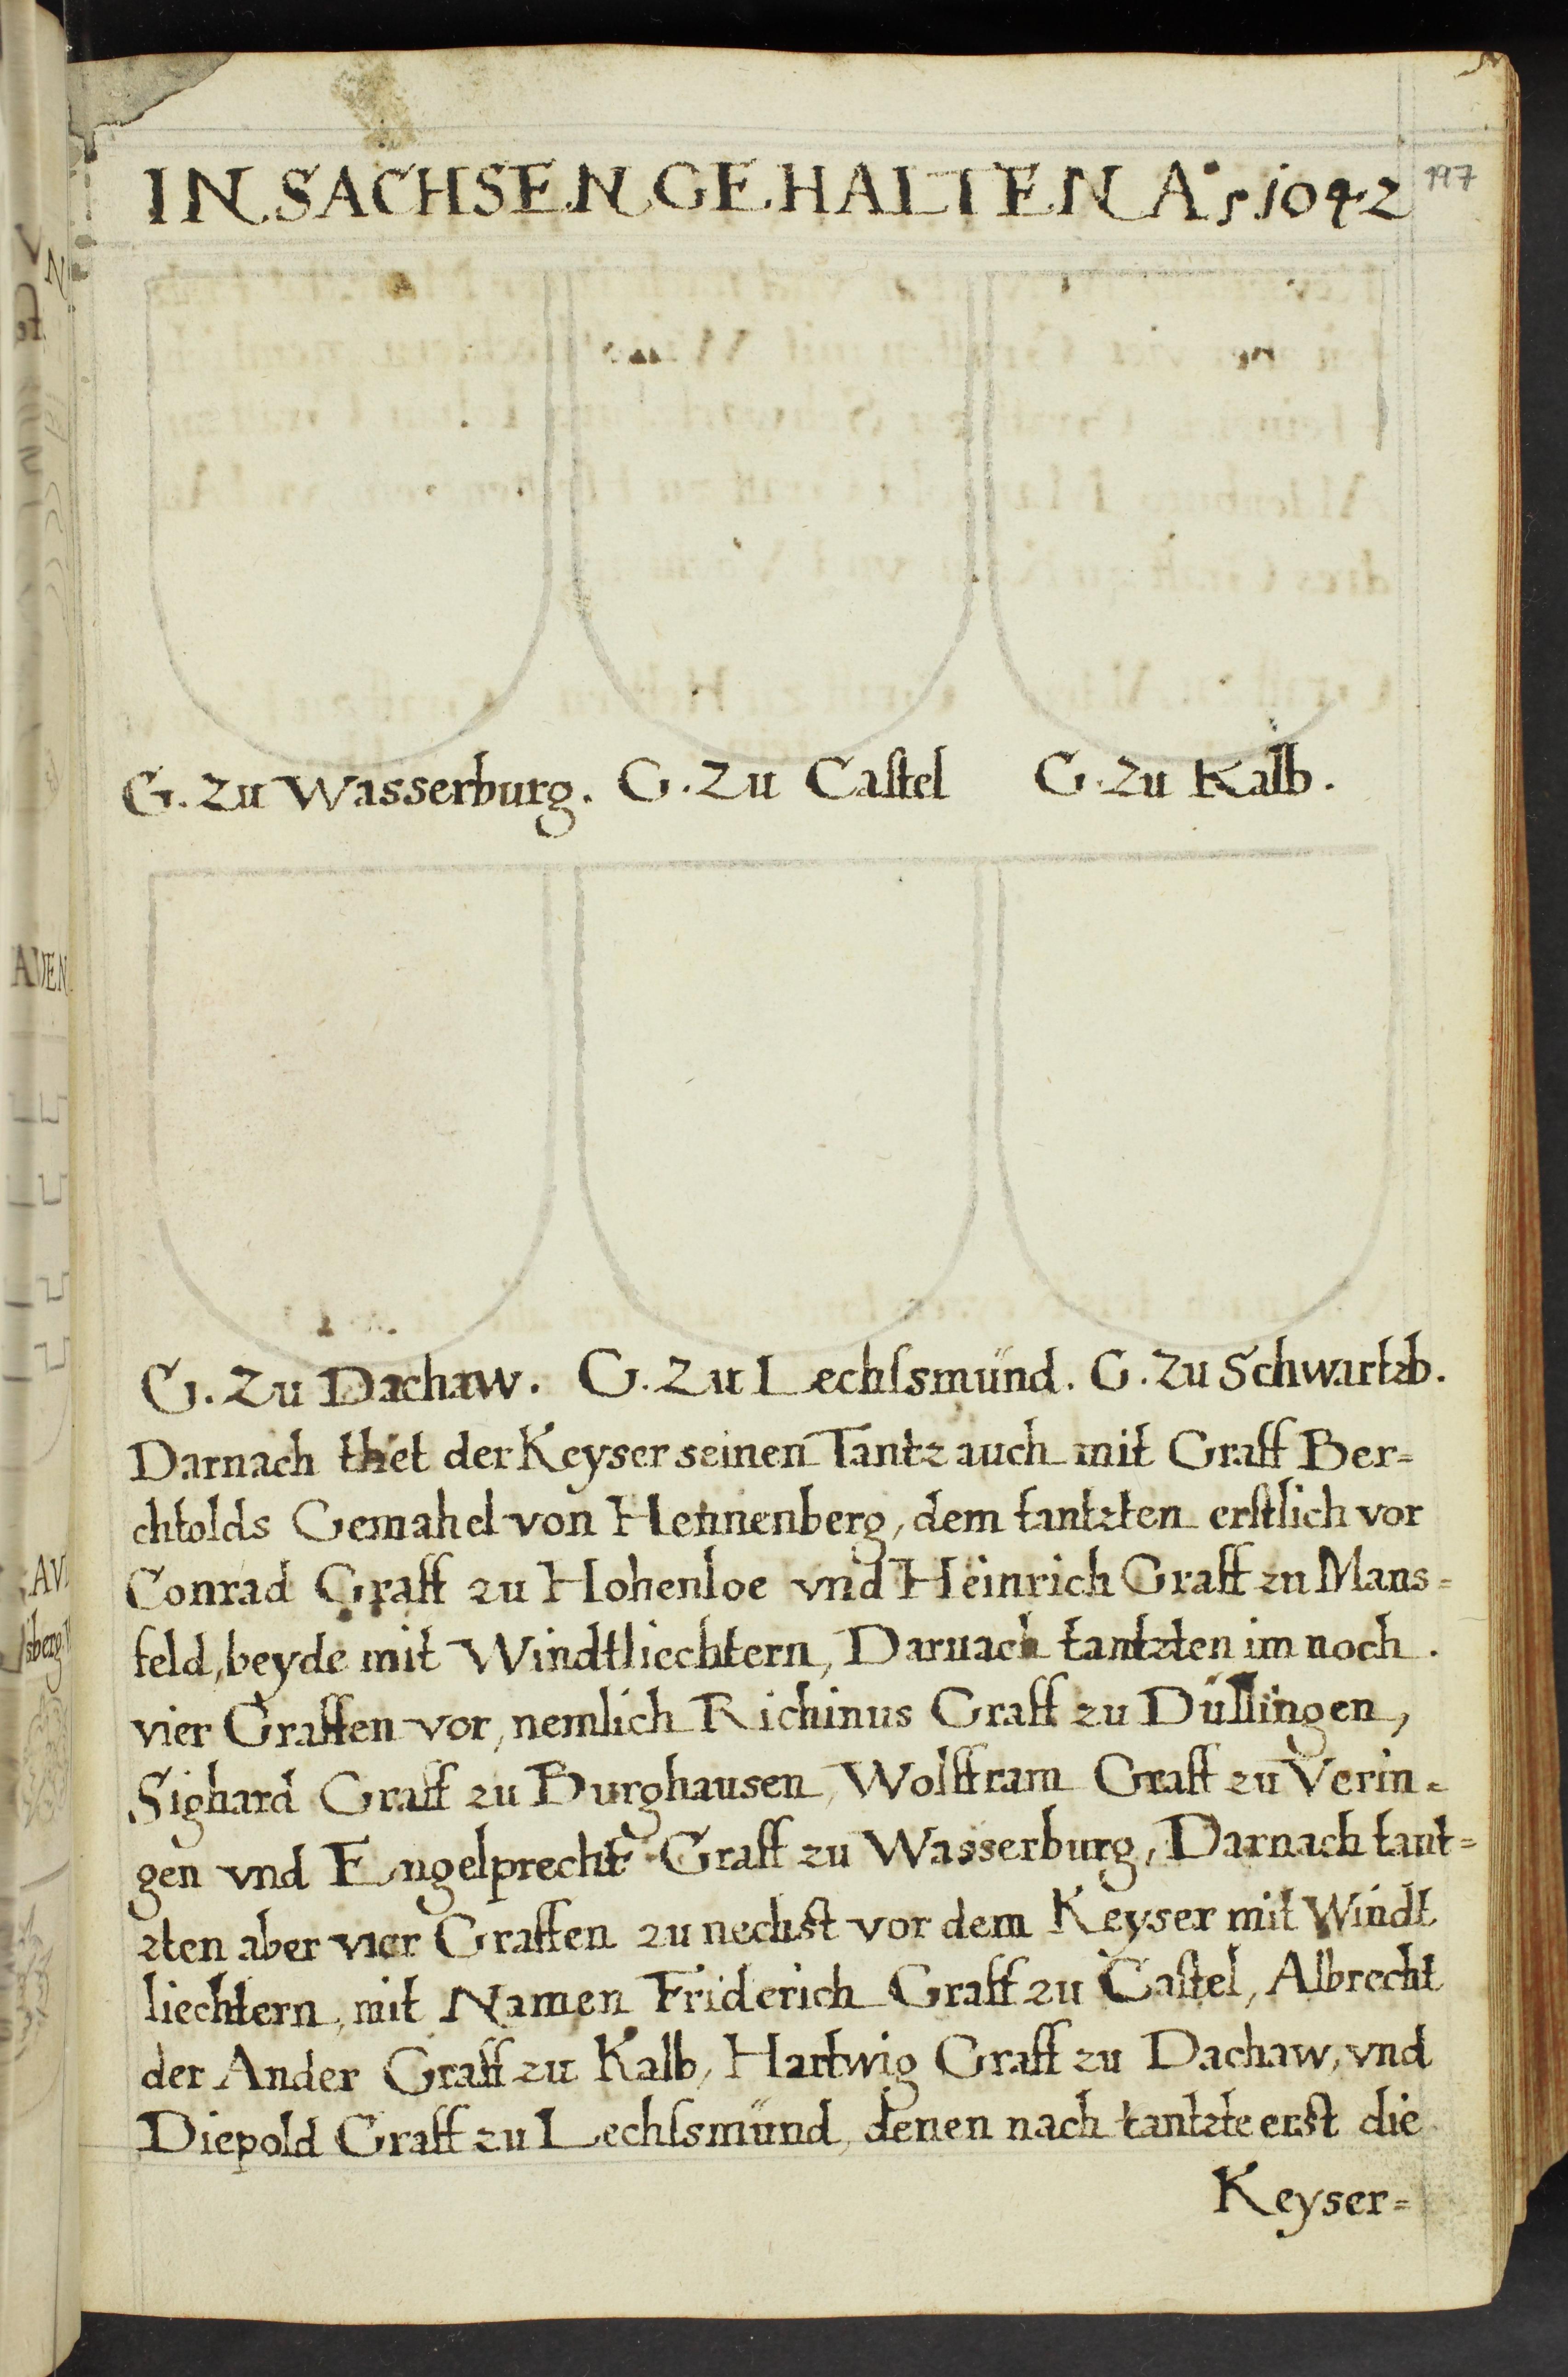 IN SACHSEN GEHALTEN A° 1042
197
G. zu Wasserburg. G. zu Castel G. zu Kalb.
G. zu Dachaw. G. zu Lechssmünd. G. zu Schwartzb.
Darnach thet der Keyser seinen Tantz auch mit Graff Ber=
chtolds Gemahel von Hennenberg, dem tantzten erstlich vor
Conrad Graff zu Hohenloe vnd Heinrich Graff zu Mans=
feld, beyde mit Windtliechtern, Darnach tantzten im noch
vier Graffen vor, nemlich Richinus Graff zu Düllingen,
Sighard Graff zu Burghausen, Wolffram Graff zu Verin=
gen vnd Engelprecht Graff zu Wasserburg, Darnach tant=
zten aber vier Graffen zu nechst vor dem Keyser mit Windt
liechtern, mit Namen Friderich Graff zu Castel, Albrecht
der Ander Graff zu Kalb, Hartwig Graff zu Dachaw, vnd
Diepold Graff zu Lechssmünd, denen nach tantzte erst die
Keyser=